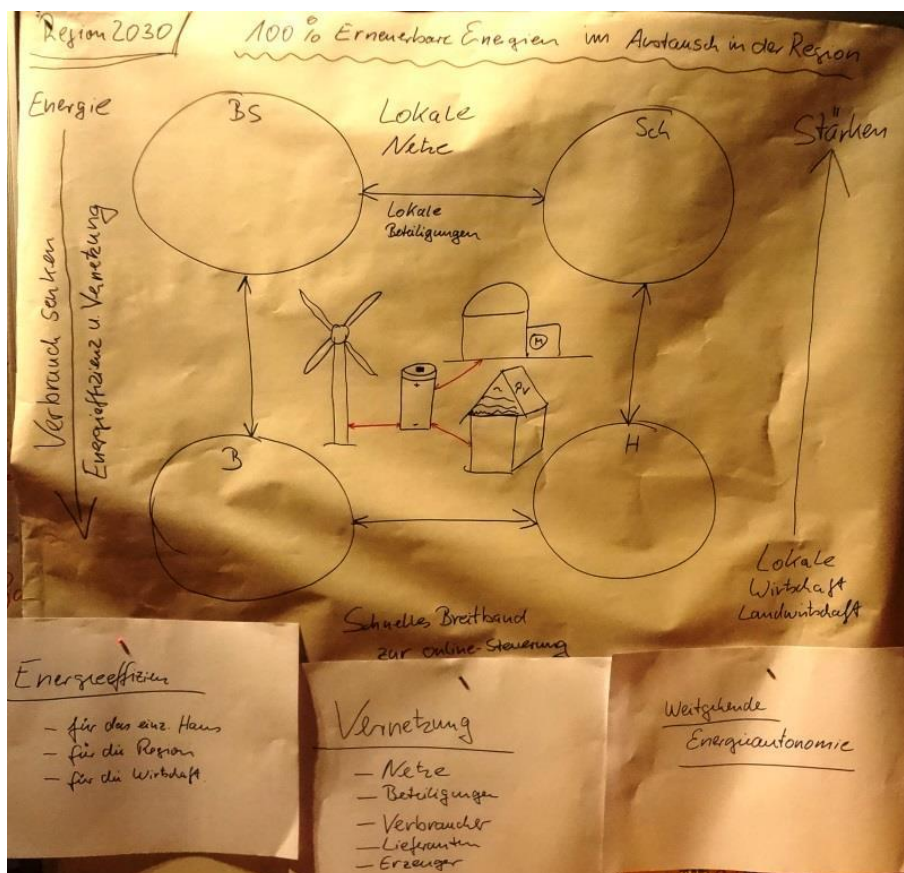 Region 2030
100 % Erneuerbare Energien im Austausch in der Region
Energie
Verbrauch senken
Energieeffizienz u. Vernetzung
BS
Lokale
Netze
Lokale
Beteiligungen
Sch
Stärken
M
PV
+
-
B
H
Lokale
Wirtschaft
Landwirtschaft
Schnelles Breitband
zur online-Steuerung
Energieeffizien
- für das einz. Haus
- für die Region
- für die Wirtschaft
Vernetzung
- Netze
- Beteiligungen
- Verbraucher
- Lieferanten
- Erzeuger
Weitgehende
Energieautonomie